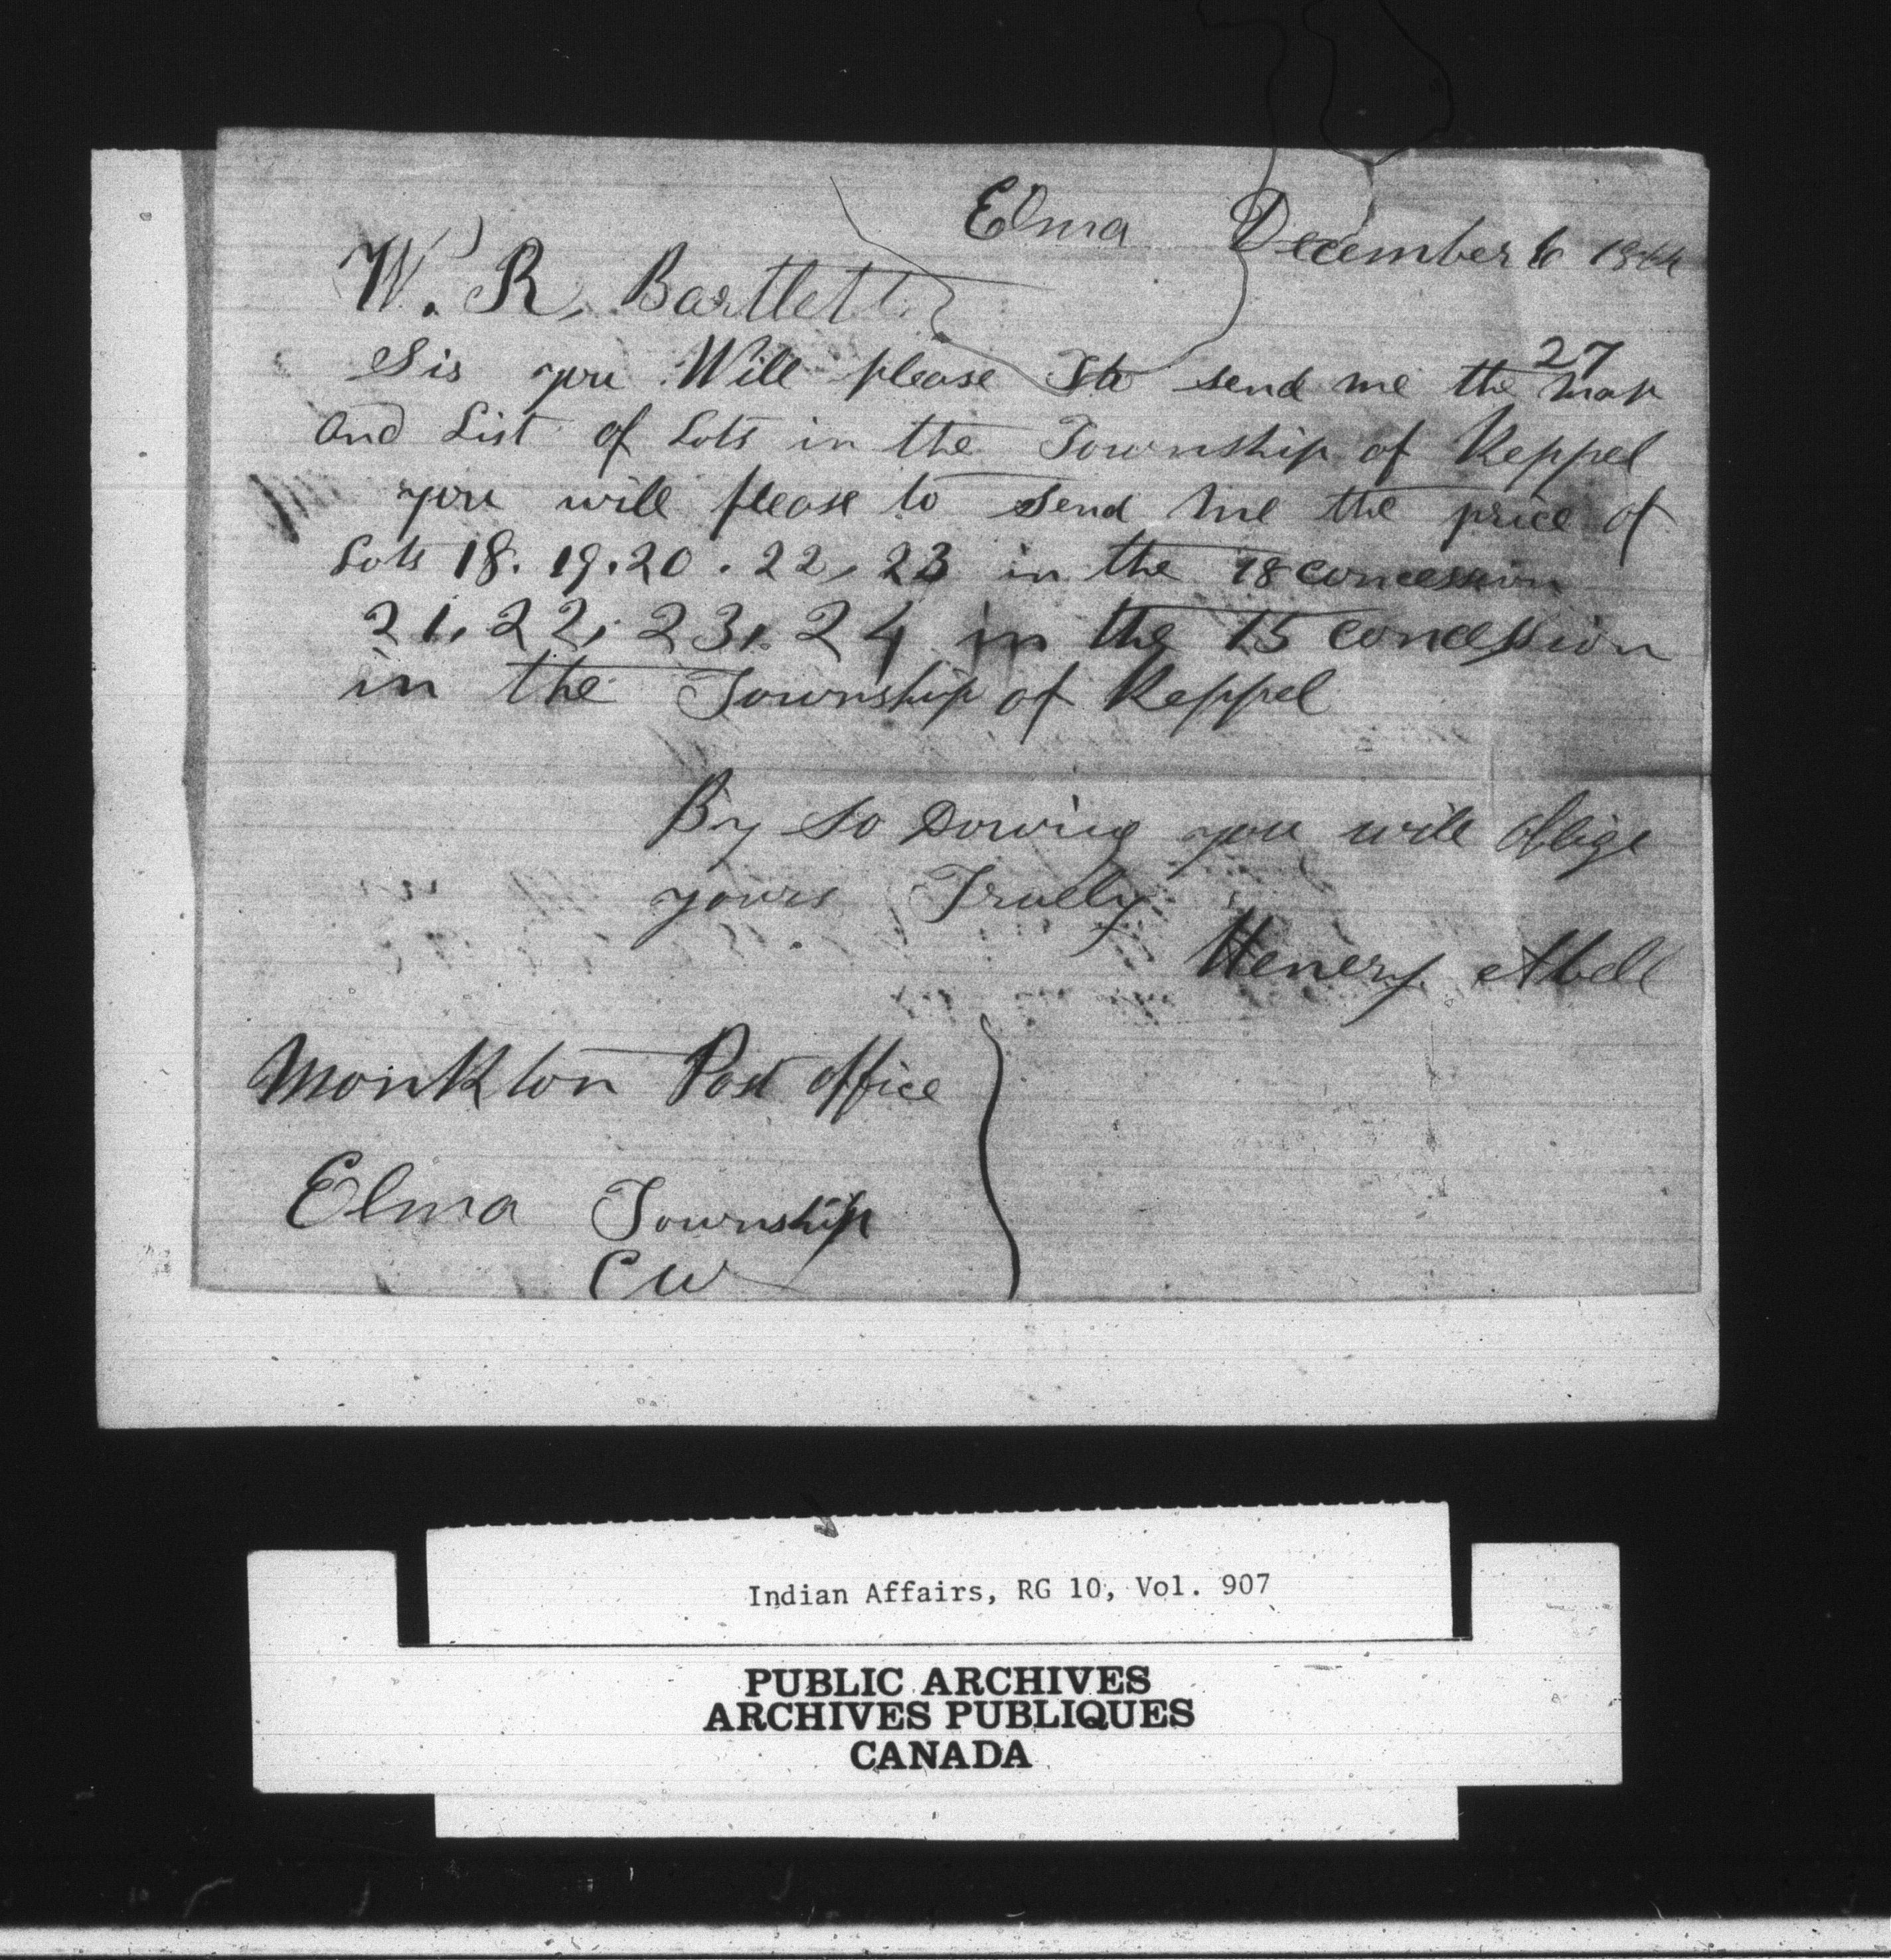 Elma December 6 1864
W. R. Bartlett
27
Sir you Will please to send me the map
and List of Lots in the Township of Keppel
you will please to send me the price of
Lots 18. 19. 20. 22, 23 in the 18 concession
21, 22, 23, 24 in the 15 concession
in the Township of Keppel
By So Dowing you will oblige
yours Truely
Henery Abell
Monkton Post office
Elma Township
CW
Indian Affairs, RG 10, Vol. 907
PUBLIC ARCHIVES
ARCHIVES PUBLIQUES
CANADA